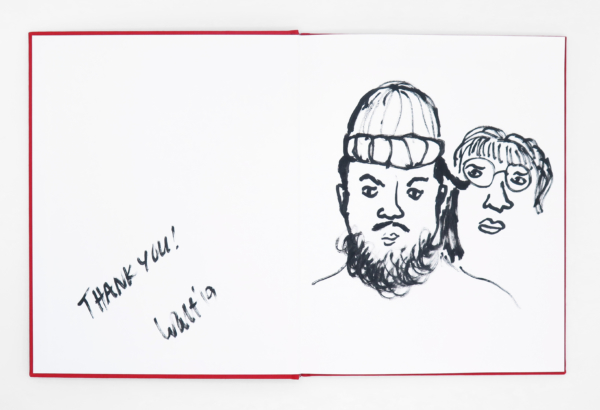 THANK YOU!
Walt '19